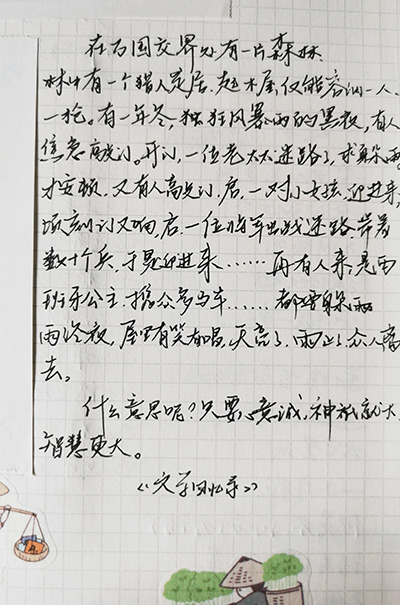 在百国交界处有一片森林
林中有一个猎人定居,起木屋,仅能容纳一人、
一枪。有一年冬,独狂风暴雨的黑夜,有人
焦急高敲门。开门,一位老太太迷路了,求躲雨,
才安顿,又有人高兑门,启,一对小女孩,迎进来,
顷刻门又响,启,一位将军出战迷路,带着
数十个兵,于是迎进来……再有人来,是西
班牙公主,携众多马车……都要躲雨
雨终夜,屋里有笑有唱,天亮了,雨止了,众人离
去。
什么意思呢?只要心意诚,神祇就大,
智慧更大。
《文学回忆录》